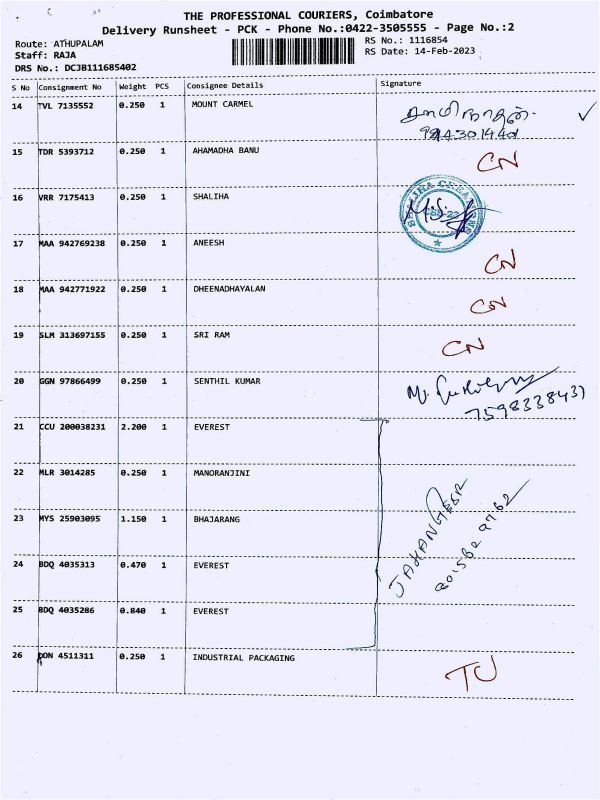 THE PROFESSIONAL COURIERS, Coimbatore
Delivery Runsheet - PCK - Phone No.:0422-3505555 - Page No.:2
Route: ATHUPALAM RS No.: 1116854
Staff: RAJA RS Date: 14-Feb-2023
DRS No.: DCJB111685402
S No Consignment No Weight PCS Consignee Details Signature
14 TVL 7135552 0.250 1 MOUNT CARMEL
15 TDR 5393712 0.250 1 AHAMADHA BANU CN
16 VRR 7175413 0.250 1 SHALIHA
17 MAA 942769238 0.250 1 ANEESH CN
18 MAA 942771922 0.250 1 DHEENADHAYALAN CN
19 SLM 313697155 0.250 1 SRI RAM CN
20 GGN 97866499 0.250 1 SENTHIL KUMAR
7598338437
21 CCU 200038231 2.200 1 EVEREST
22 MLR 3014285 0.250 1 MANORANJINI
23 MYS 25903095 1.150 1 BHAJARANG
JAHANGEER
24 BDQ 4035313 0.470 1 EVEREST
25 BDQ 4035286 0.840 1 EVEREST
26 DDN 4511311 0.250 1 INDUSTRIAL PACKAGING TJ